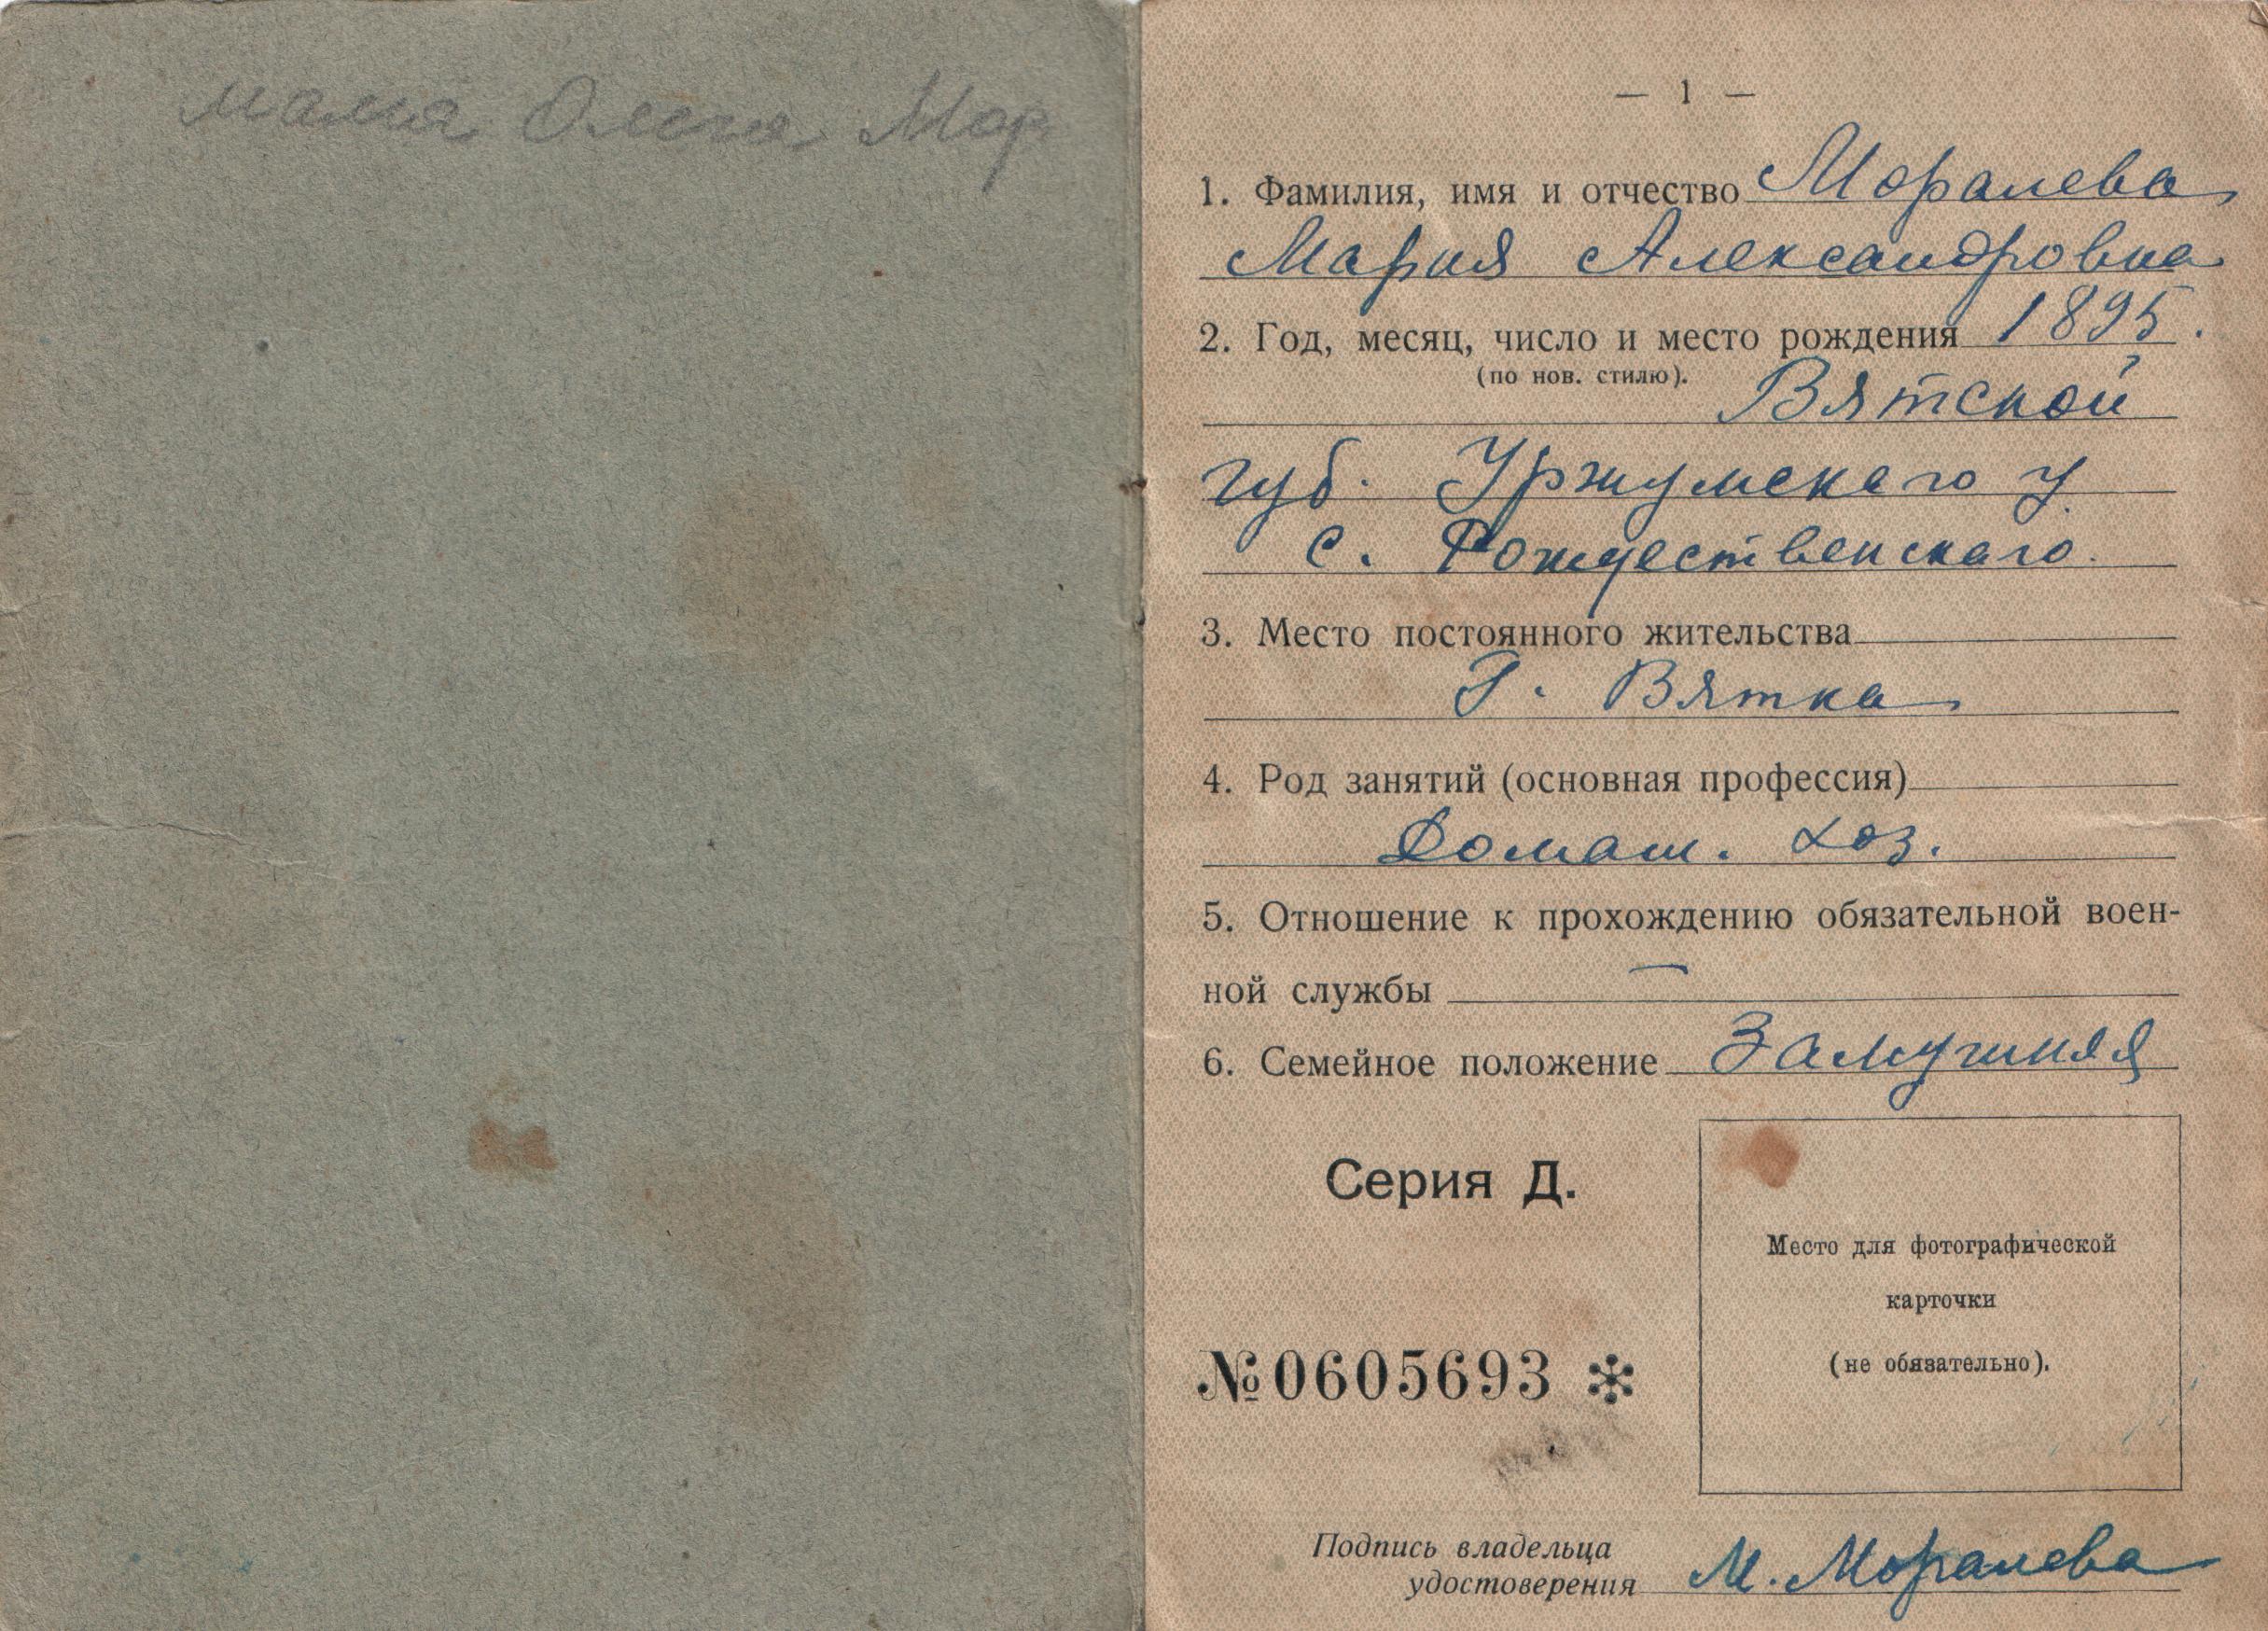 мама Олега Мор
— 1 —
1. Фамилия, имя и отчество Моралева
Мария Александровна
2. Год, месяц, число и место рождения 1895.
(по нов. стилю).
Вятской
губ. Уржумскаго у.
с. Рождественскаго.
3. Место постоянного жительства
г. Вятка
4. Род занятий (основная профессия)
Домаш. хоз.
5. Отношение к прохождению обязательной воен-
ной службы —
6. Семейное положение Замужняя
Серия Д.
Место для фотографической
карточки
(не обязательно).
№ 0605693 *
Подпись владельца
удостоверения М. Моралева